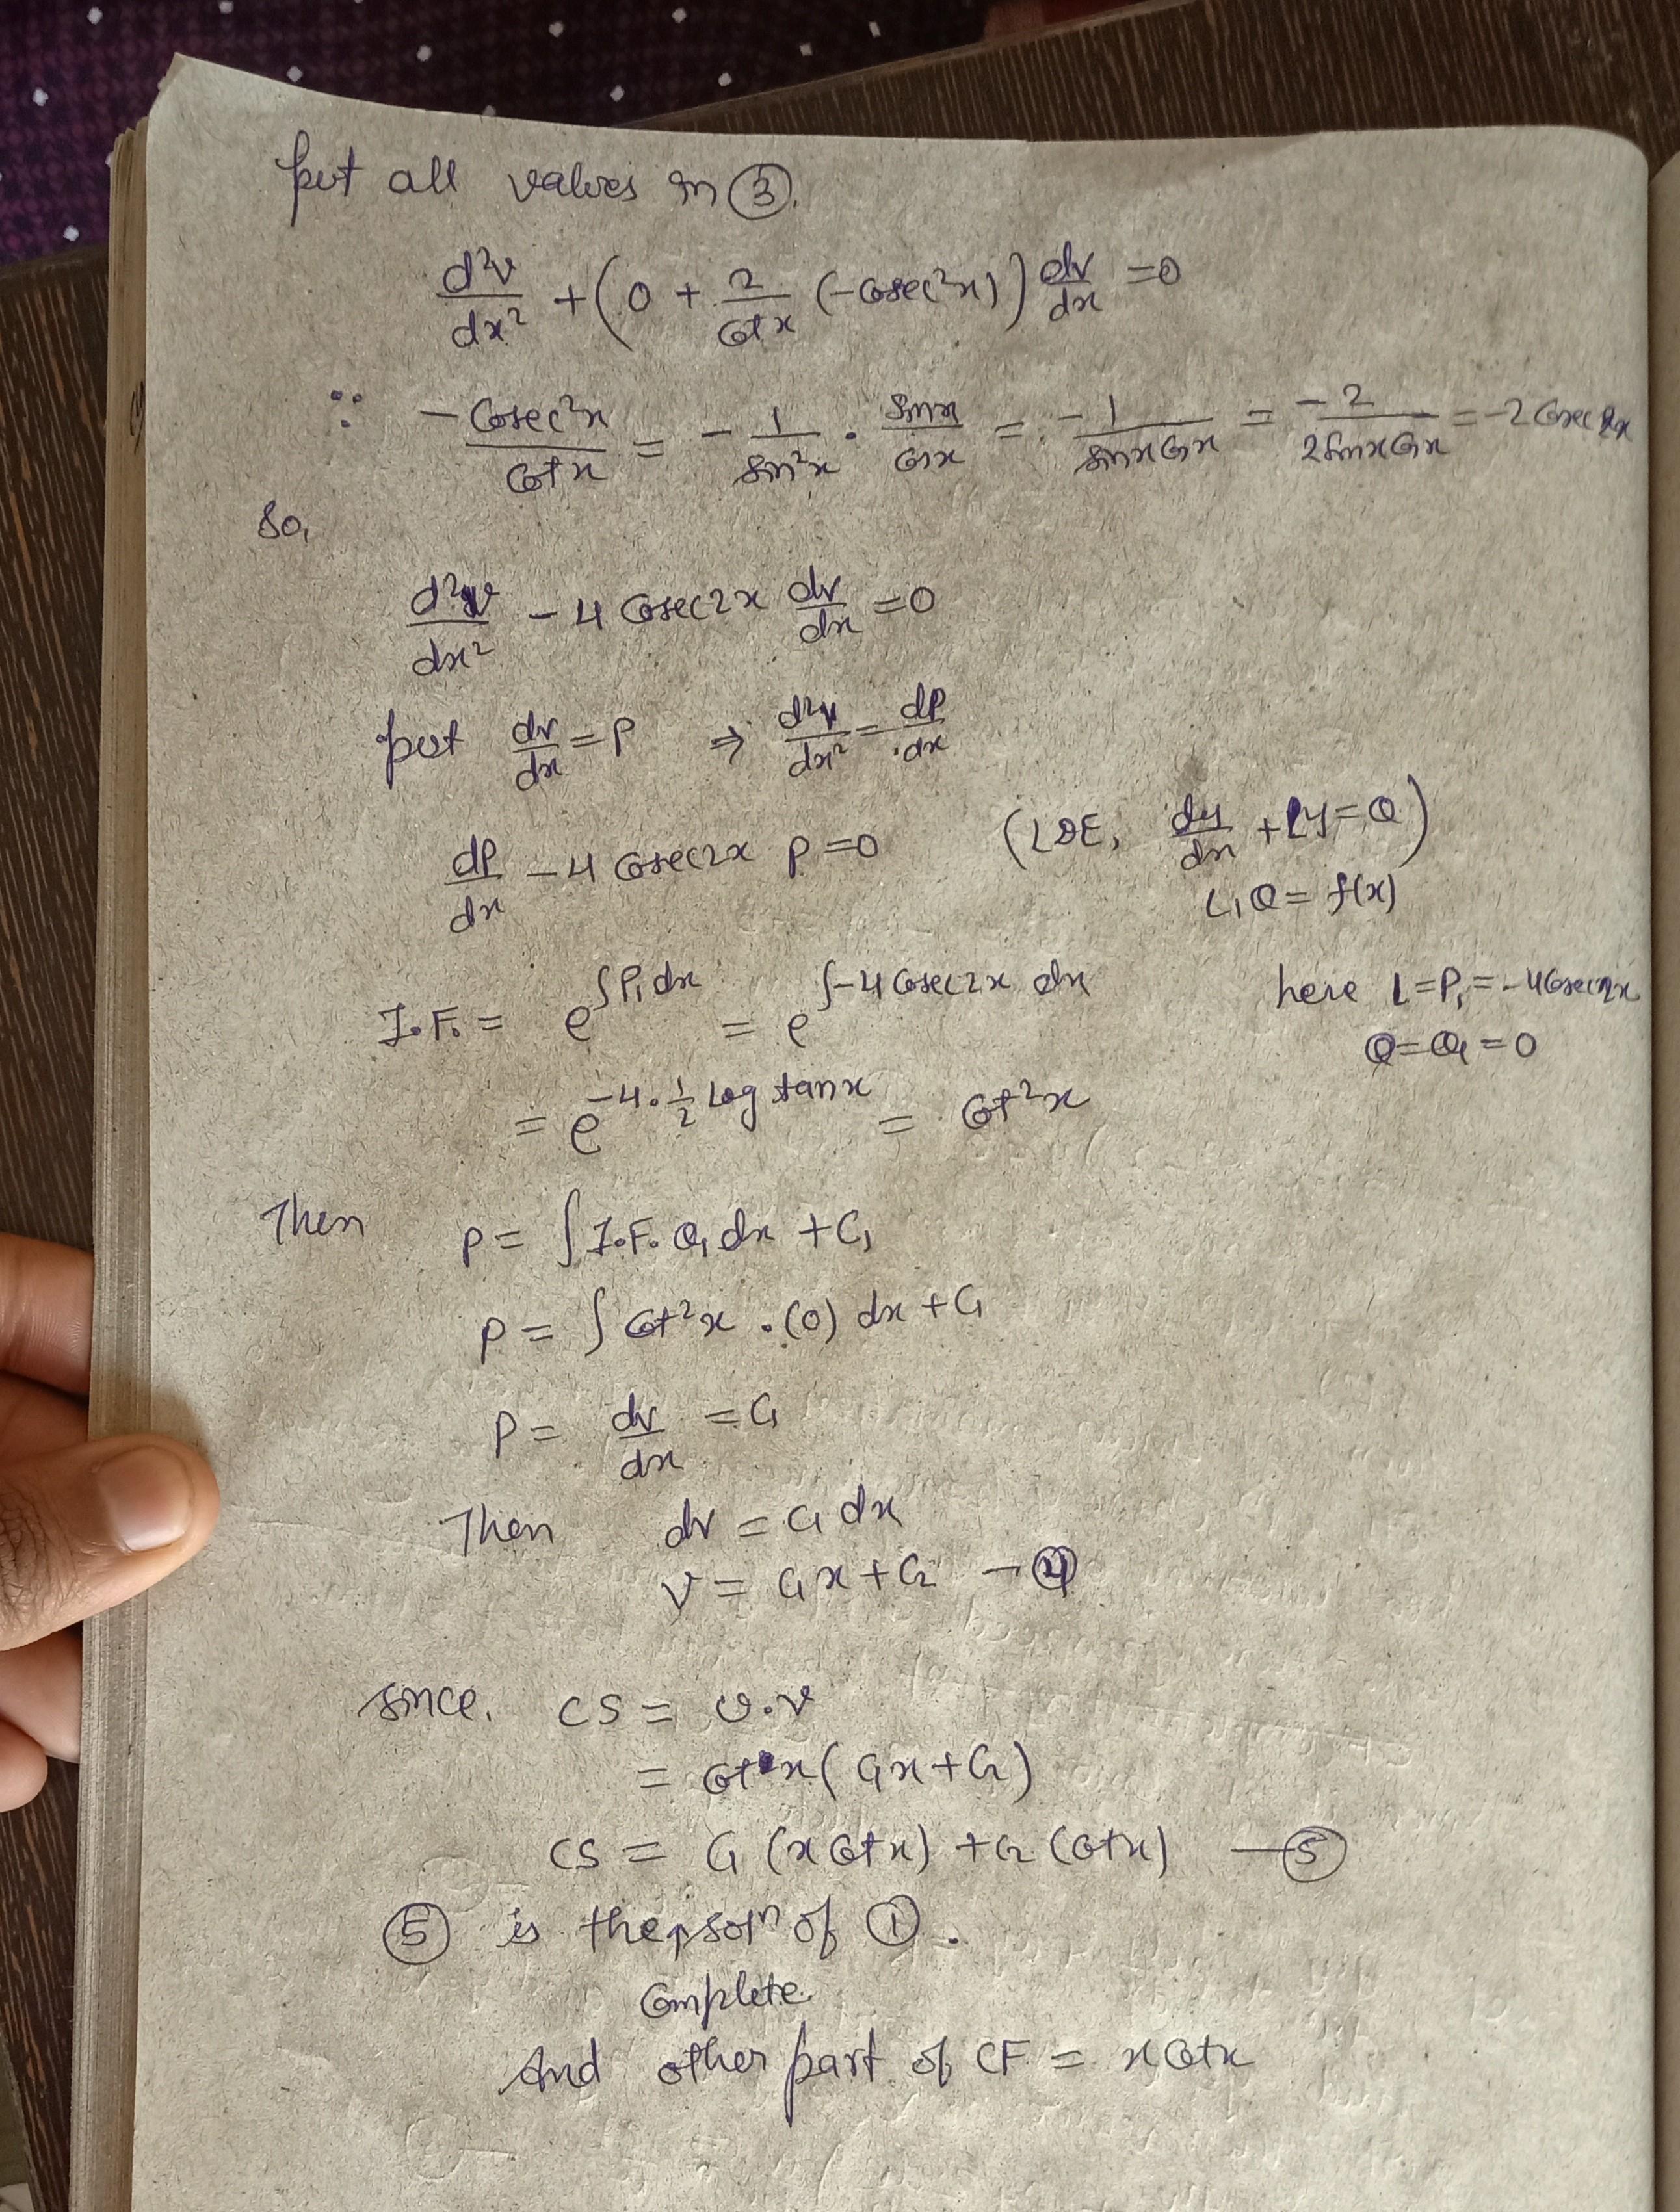 put all values in ③.
d²v/dx² + (0 + 2/cotx (-cosec²x)) dv/dx = 0
∵ -cosec²x/cotx = -1/sin²x · sinx/cosx = -1/sinxcosx = -2/2sinxcosx = -2cosec2x
So,
d²v/dx² - 4 cosec2x dv/dx = 0
put dv/dx = p ⇒ d²v/dx² = dp/dx
dp/dx - 4 cosec2x p = 0 (LDE, dy/dx + Ly = Q)
L, Q = f(x)
I.F. = e^∫P₁dx = e^∫-4cosec2x dx here L = P₁ = -4cosec2x
Q = Q₁ = 0
= e^-4·1/2 log tanx = cot²x
Then p = ∫ I.F. Q₁ dx + C₁
p = ∫ cot²x · (0) dx + C₁
p = dv/dx = C₁
Then dv = C₁ dx
v = C₁x + C₂ — ④
Since, CS = u.v
= cotx (C₁x + C₂)
CS = C₁ (x cotx) + C₂ (cotx) — ⑤
⑤ is the solⁿ of ①.
Complete
And other part of CF = x cotx